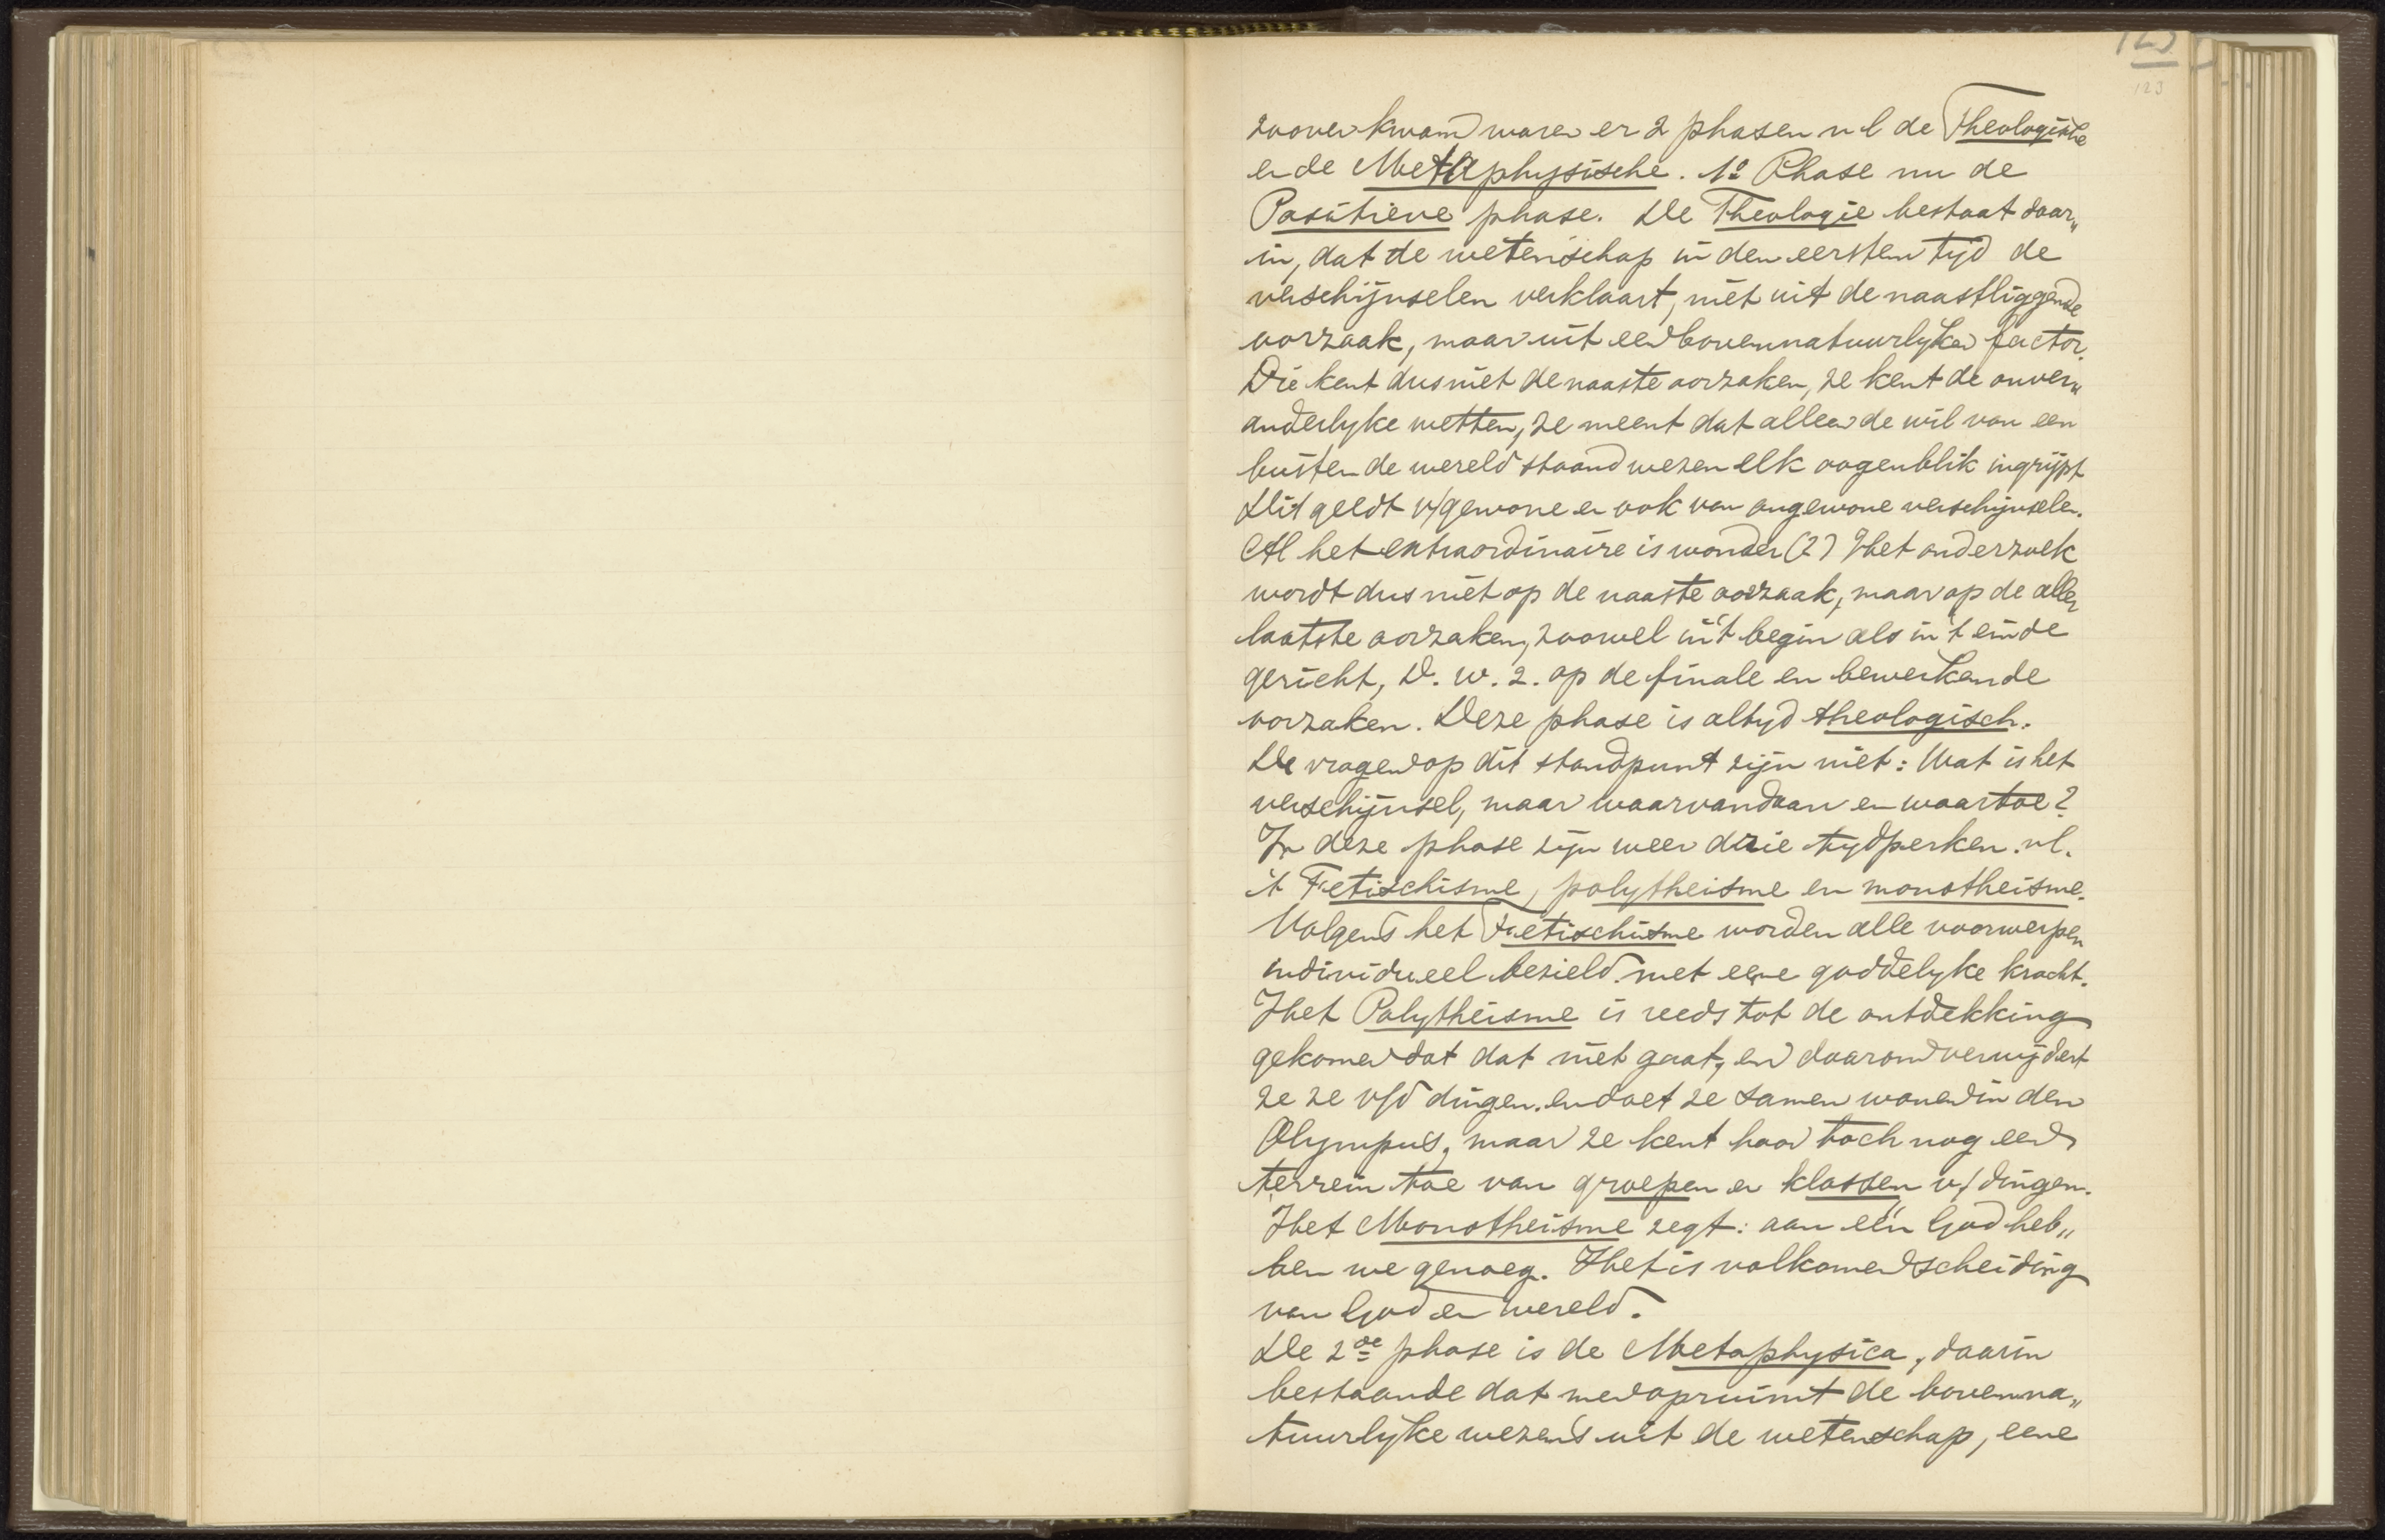 123
123
zoover kwam waren er 2 phasen nl de Theologische
en de Metaphysische. 1º Phase nu de
Positieve phase. De Theologie bestaat daar„
in, dat de wetenschap in den eersten tijd de
verschijnselen verklaart, niet uit de naastliggende
oorzaak, maar uit een bovennatuurlyken factor.
Die kent dus niet de naaste oorzaken, ze kent de onver„
anderlyke wetten, ze meent dat alleen de wil van een
buiten de wereld staand wezen elk oogenblik ingrijpt
Dit geldt v/gewone en ook van ongewone verschijnselen.
Al het extraordinaire is wonder (?) Het onderzoek
wordt dus niet op de naaste oorzaak, maar op de aller
laatste oorzaken, zoowel in 't begin als in 't einde
gericht, D. w. z. op de finale en bewerkende
oorzaken. Deze phase is altyd theologisch.
De vragen op dit standpunt zijn niet: Wat is het
verschijnsel, maar waarvandaan en waartoe?
In deze phase zijn weer drie tydperken. nl.
't Fetischisme, polytheisme en monotheisme.
Volgens het Fetischisme worden alle voorwerpen
individueel bezield met eene goddelyke kracht.
Het Polytheisme is reeds tot de ontdekking
gekomen dat dat niet gaat, en daarom verwijdert
ze ze v/d dingen. en doet ze samen wonen in den
Olympus, maar ze kent haar toch nog een
terrein toe van groepen en klassen v/dingen.
Het Monotheisme zegt: aan één God heb„
ben we genoeg. Het is volkomen scheiding
van God en wereld.
De 2de phase is de Metaphysica, daarin
bestaande dat men opruimt de bovenna„
tuurlyke wezens uit de wetenschap, eene